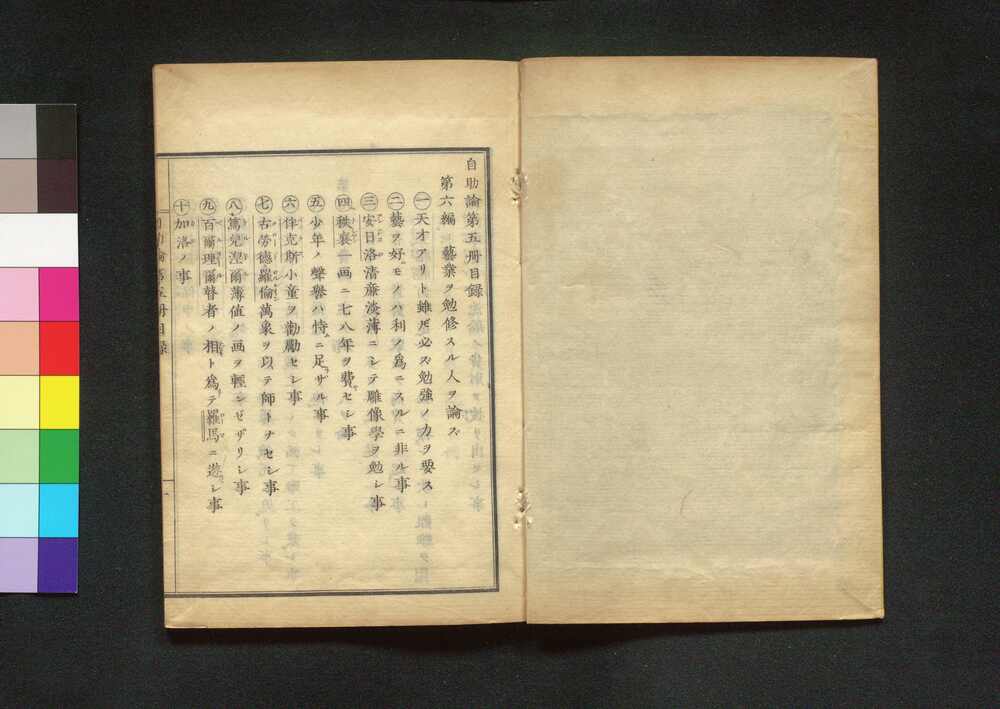 自助論第五冊目録
第六編 藝業ヲ勉修スル人ヲ論ズ
㊀天才アリト雖𪜈必ズ勉強ノ力ヲ要ス
㊁藝ヲ好ムモノハ利ノ爲ニスルニ非ル事
㊂安日洛清廉淡薄ニシテ雕像學ヲ勉シ事
㊃秩襄一画ニ七八年ヲ費セシ事
㊄少年ノ聲譽ハ恃ニ足ザル事
㊅伴克斯小童ヲ勸勵セシ事
㊆古勞德羅倫萬象ヲ以テ師トナセシ事
㊇篤兒涅爾薄値ノ画ヲ輕ンゼザリシ事
㊈百爾理爾瞽者ノ相ト爲テ羅馬ニ遊シ事
㊉加洛ノ事